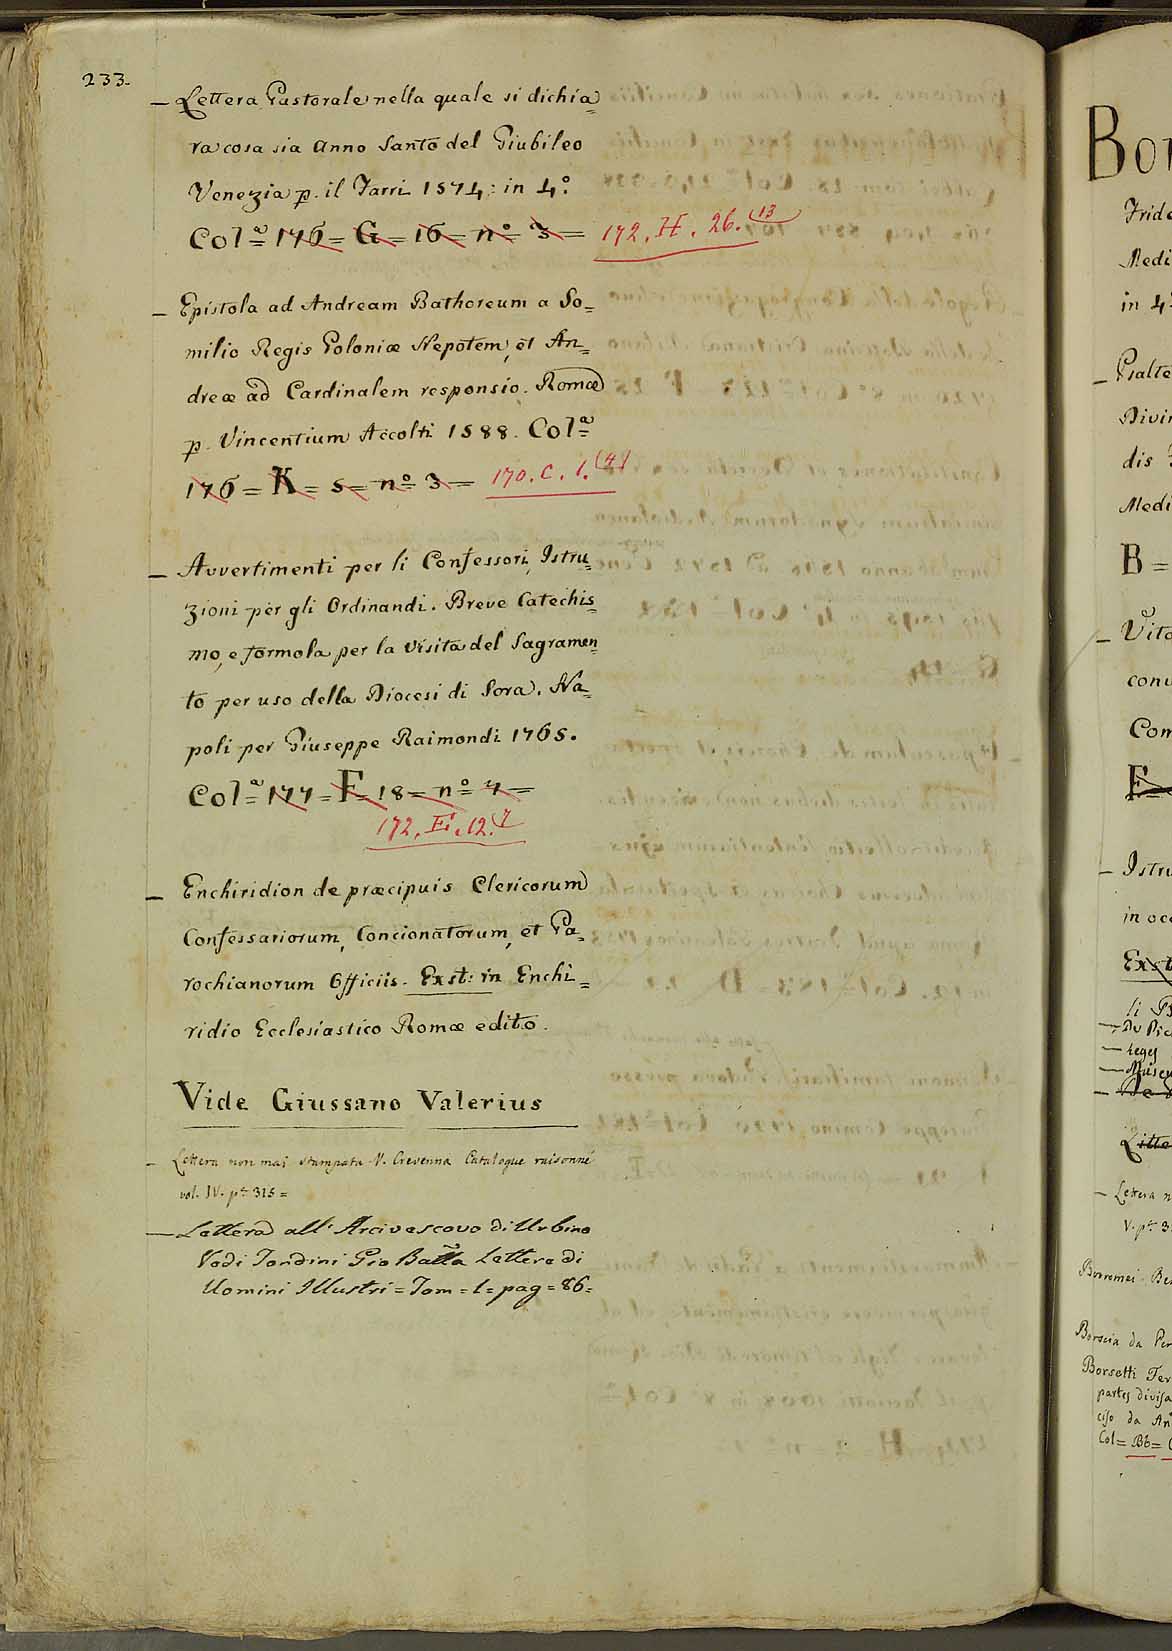 233.
— Lettera Pastorale nella quale si dichia=
ra cosa sia Anno Santo del Giubileo
Venezia p. il Farri 1574: in 4°.
Col.a = 176 = G = 16 = n° = 3 = 172. H. 26. (13
— Epistola ad Andream Bathoreum a So=
milio Regis Poloniæ Nepotem, et An=
dreæ ad Cardinalem responsio. Romæ
p. Vincentium Accolti 1588. Col.a
176 = K = 5 = n° = 3 = 170. C. 1. (4)
— Avvertimenti per li Confessori, Istru=
zioni per gli Ordinandi. Breve Catechis=
mo, e formola per la visita del Sagramen=
to per uso della Diocesi di Sora. Na=
poli per Giuseppe Raimondi 1765.
Col.a = 177 = F = 18 = n° = 7 =
172. E. 12. 7
— Enchiridion de præcipuis Clericorum
Confessariorum, Concionatorum, et Pa=
rochianorum Officiis. Exst: in Enchi=
ridio Ecclesiastico Romæ edito.
Vide Giussano Valerius
— Lettera non mai stampata V. Crevenna Catalogue raisonné
vol. IV. p. 315 =
— Lettera all' Arcivescovo di Urbino
Vedi Tondini Gio Batta Lettere di
Uomini Illustri = Tom = 1 = pag = 86 =
Bor
Medi
in 4
— Psalte
Divin
dis
Medi
B =
— Vita
conv
Com
F =
— Istru
in occ
Exst
li
— Leges
— Lettera n
V. p. 3
Borromei Be
Borscia da Per
Borsetti Fer
partes divisa
da An
Col = Bb =